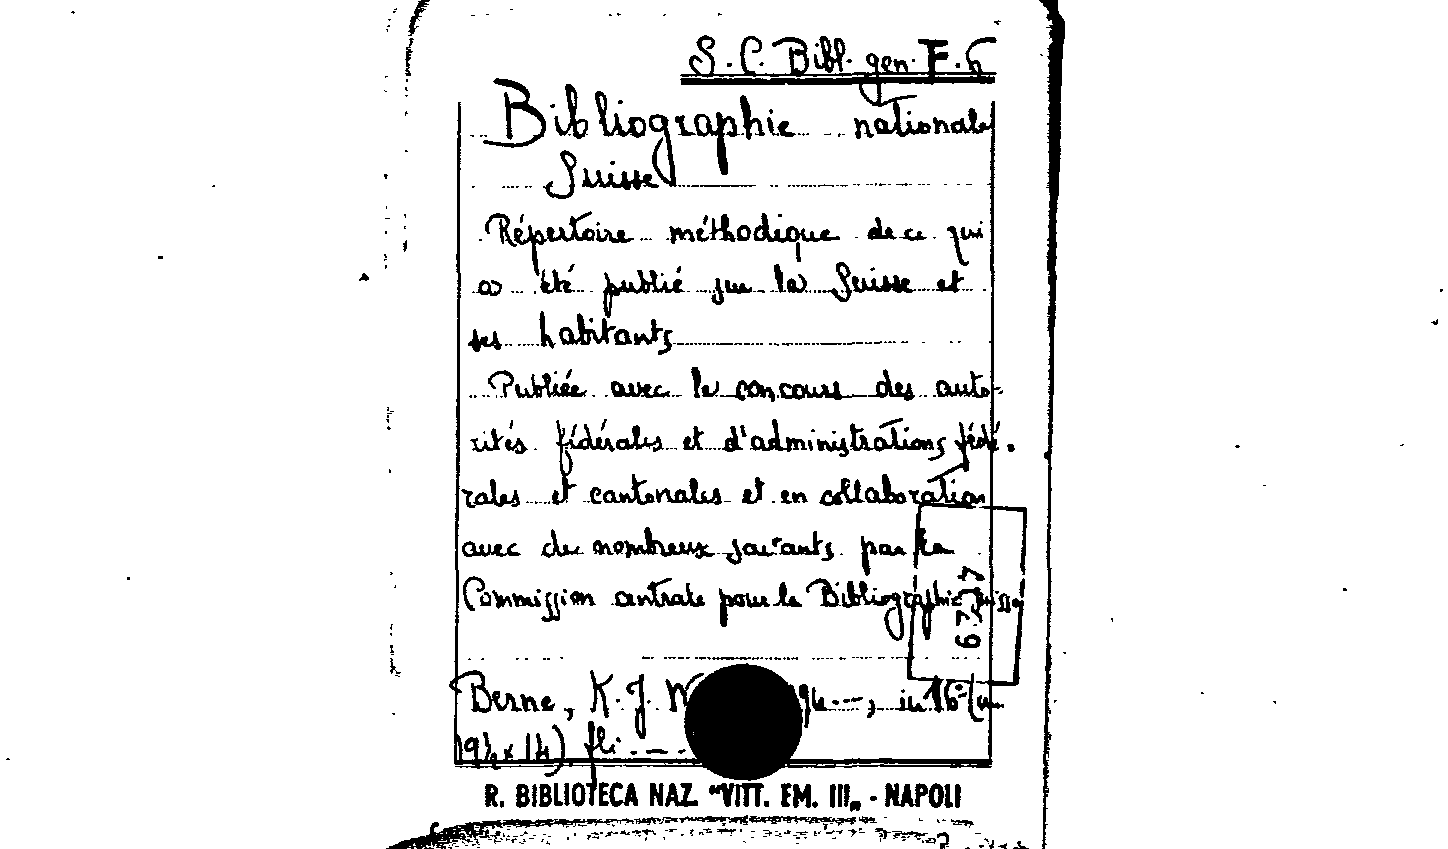 S. C. Bibl. gen. F. 6
Bibliographie nationale
Suisse
Répertoire méthodique de ce qui
a été publié sur la Suisse et
ses habitants
Publiée avec le concours des auto-
rités fédérales et d'administrations fédé-
rales et cantonales et en collaboration
avec de nombreux savants par la
Commission centrale pour la Bibliographie suisse
Berne, K. J. W , in 16° (cm.
19½ x 14) fli. ---
R. BIBLIOTECA NAZ. "VITT. EM. III„ - NAPOLI